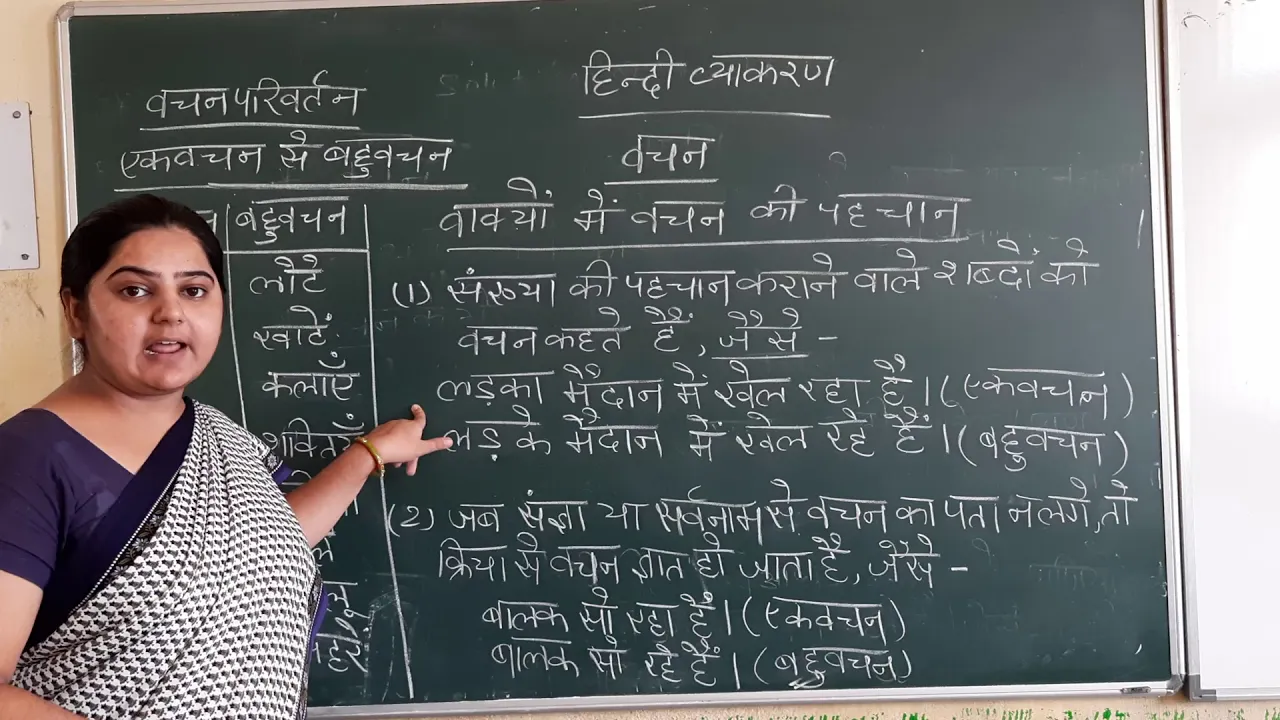 हिन्दी व्याकरण
वचन परिवर्तन
एकवचन से बहुवचन
बहुवचन
लोटे
खाटें
कलाएँ
वचन
वाक्यों में वचन की पहचान
(1) संख्या की पहचान कराने वाले शब्दों को
वचन कहते हैं, जैसे -
लड़का मैदान में खेल रहा है। (एकवचन)
लड़के मैदान में खेल रहे हैं। (बहुवचन)
(2) जब संज्ञा या सर्वनाम से वचन का पता न लगे, तो
क्रिया से वचन ज्ञात हो जाता है, जैसे -
बालक सो रहा है। (एकवचन)
बालक सो रहे हैं। (बहुवचन)